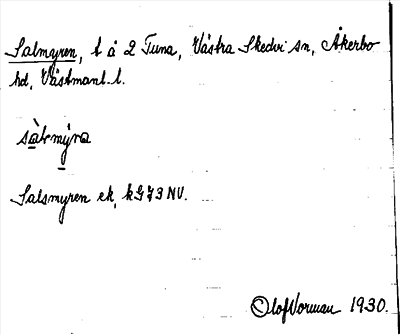 Salmyren, t å 2 Tuna, Västra Skedvi sn, Åkerbo
hd, Västmanl. l.
sàlmy̌ra
Salsmyren ek, kG73NV.
Olof Norman 1930.